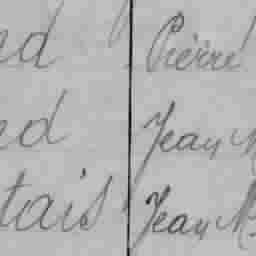 nd Pierre
ed Jean M
tais Jean M